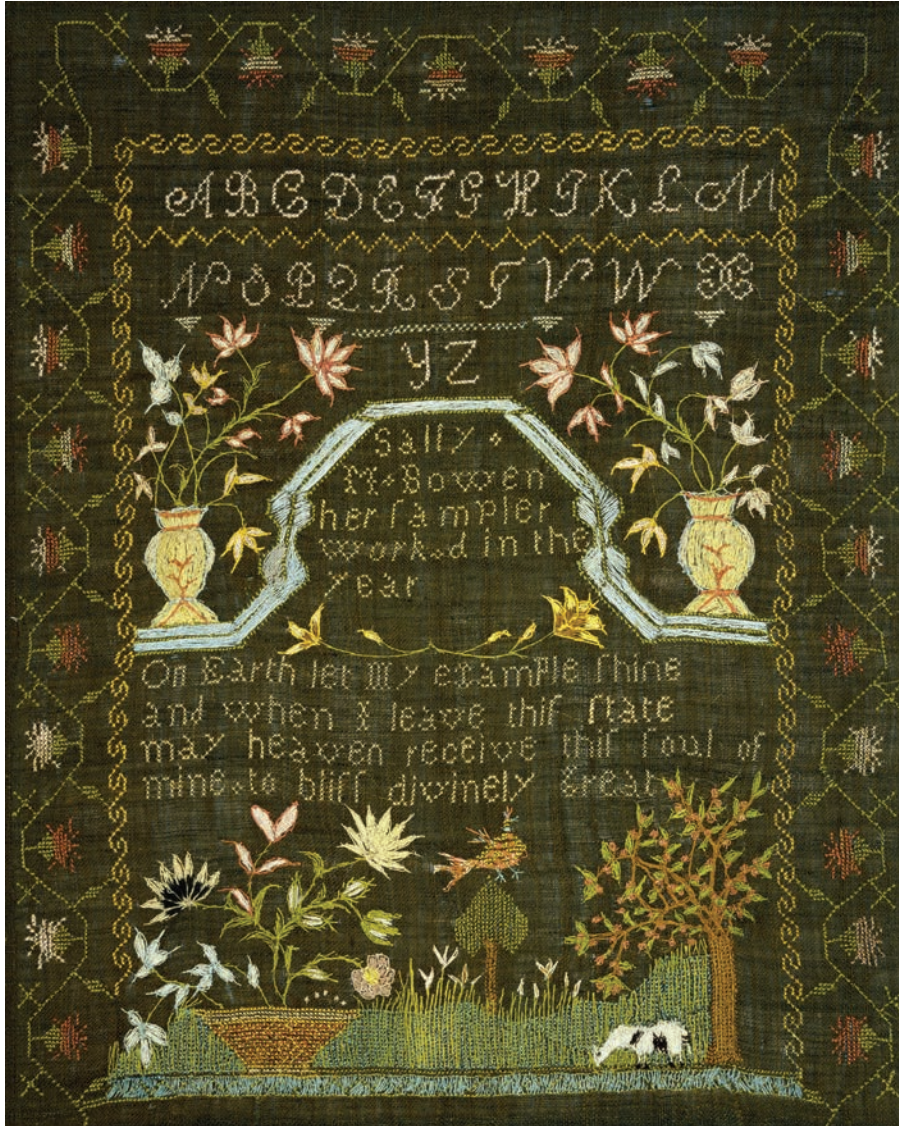 A B C D E F G H I K L M
N O P Q R S T V W X
Y Z
Sally
M Bowen
her ſampler
worked in the
year
On Earth let my example ſhine
and when I leave thiſ ſtate
may heaven receive thiſ ſoul of
mine to bliſſ divinely Great